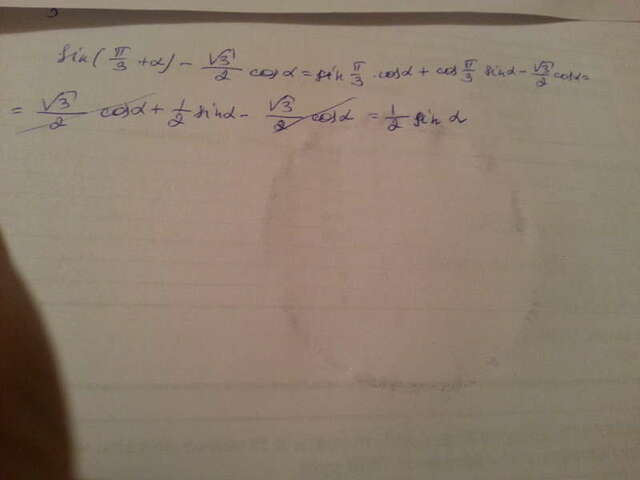 sin(π/3 + α) - √3/2 cosα = sin π/3 · cosα + cos π/3 sinα - √3/2 cosα =
= √3/2 cosα + 1/2 sinα - √3/2 cosα = 1/2 sin α